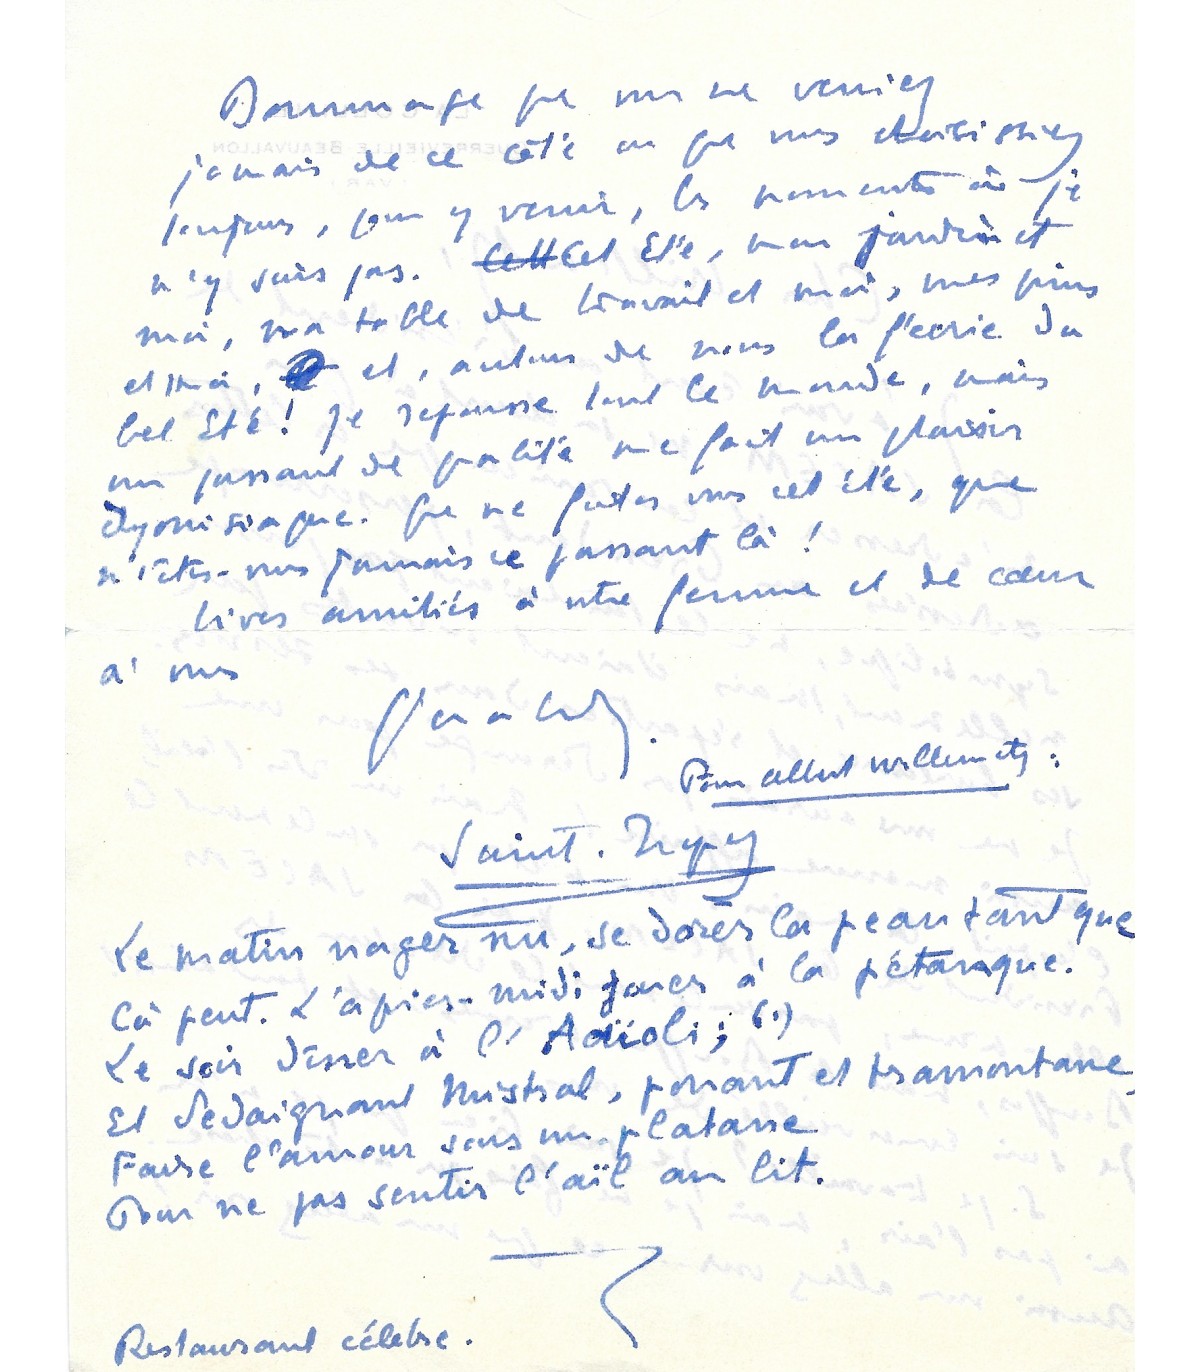 Dommage que vous ne veniez
jamais de ce côté ou que vous choisissiez
toujours, pour y venir, les moments où je
n'y suis pas. Cet Eté, mon jardin et
moi, ma table de travail et moi, mes pins
et moi, et, autour de nous la féerie du
bel Eté! Je repousse tout le monde, mais
un passant de qualité me fait un plaisir
dyonisiaque. Que ne futes vous cet été, que
n'êtes-vous jamais ce passant là!
Vives amitiés à votre femme et de cœur
à vous
Pour Albert Willemetz:
Saint. Tropez
Le matin nager nu, se dorer la peau tant que
çà peut. L'après-midi jouer à la pétanque.
Le soir dîner à l'Aïoli; (1)
Et dédaignant Mistral, ponant et tramontane,
Faire l'amour sous un platane
Pour ne pas sentir l'aïl au lit.
Restaurant célèbre.